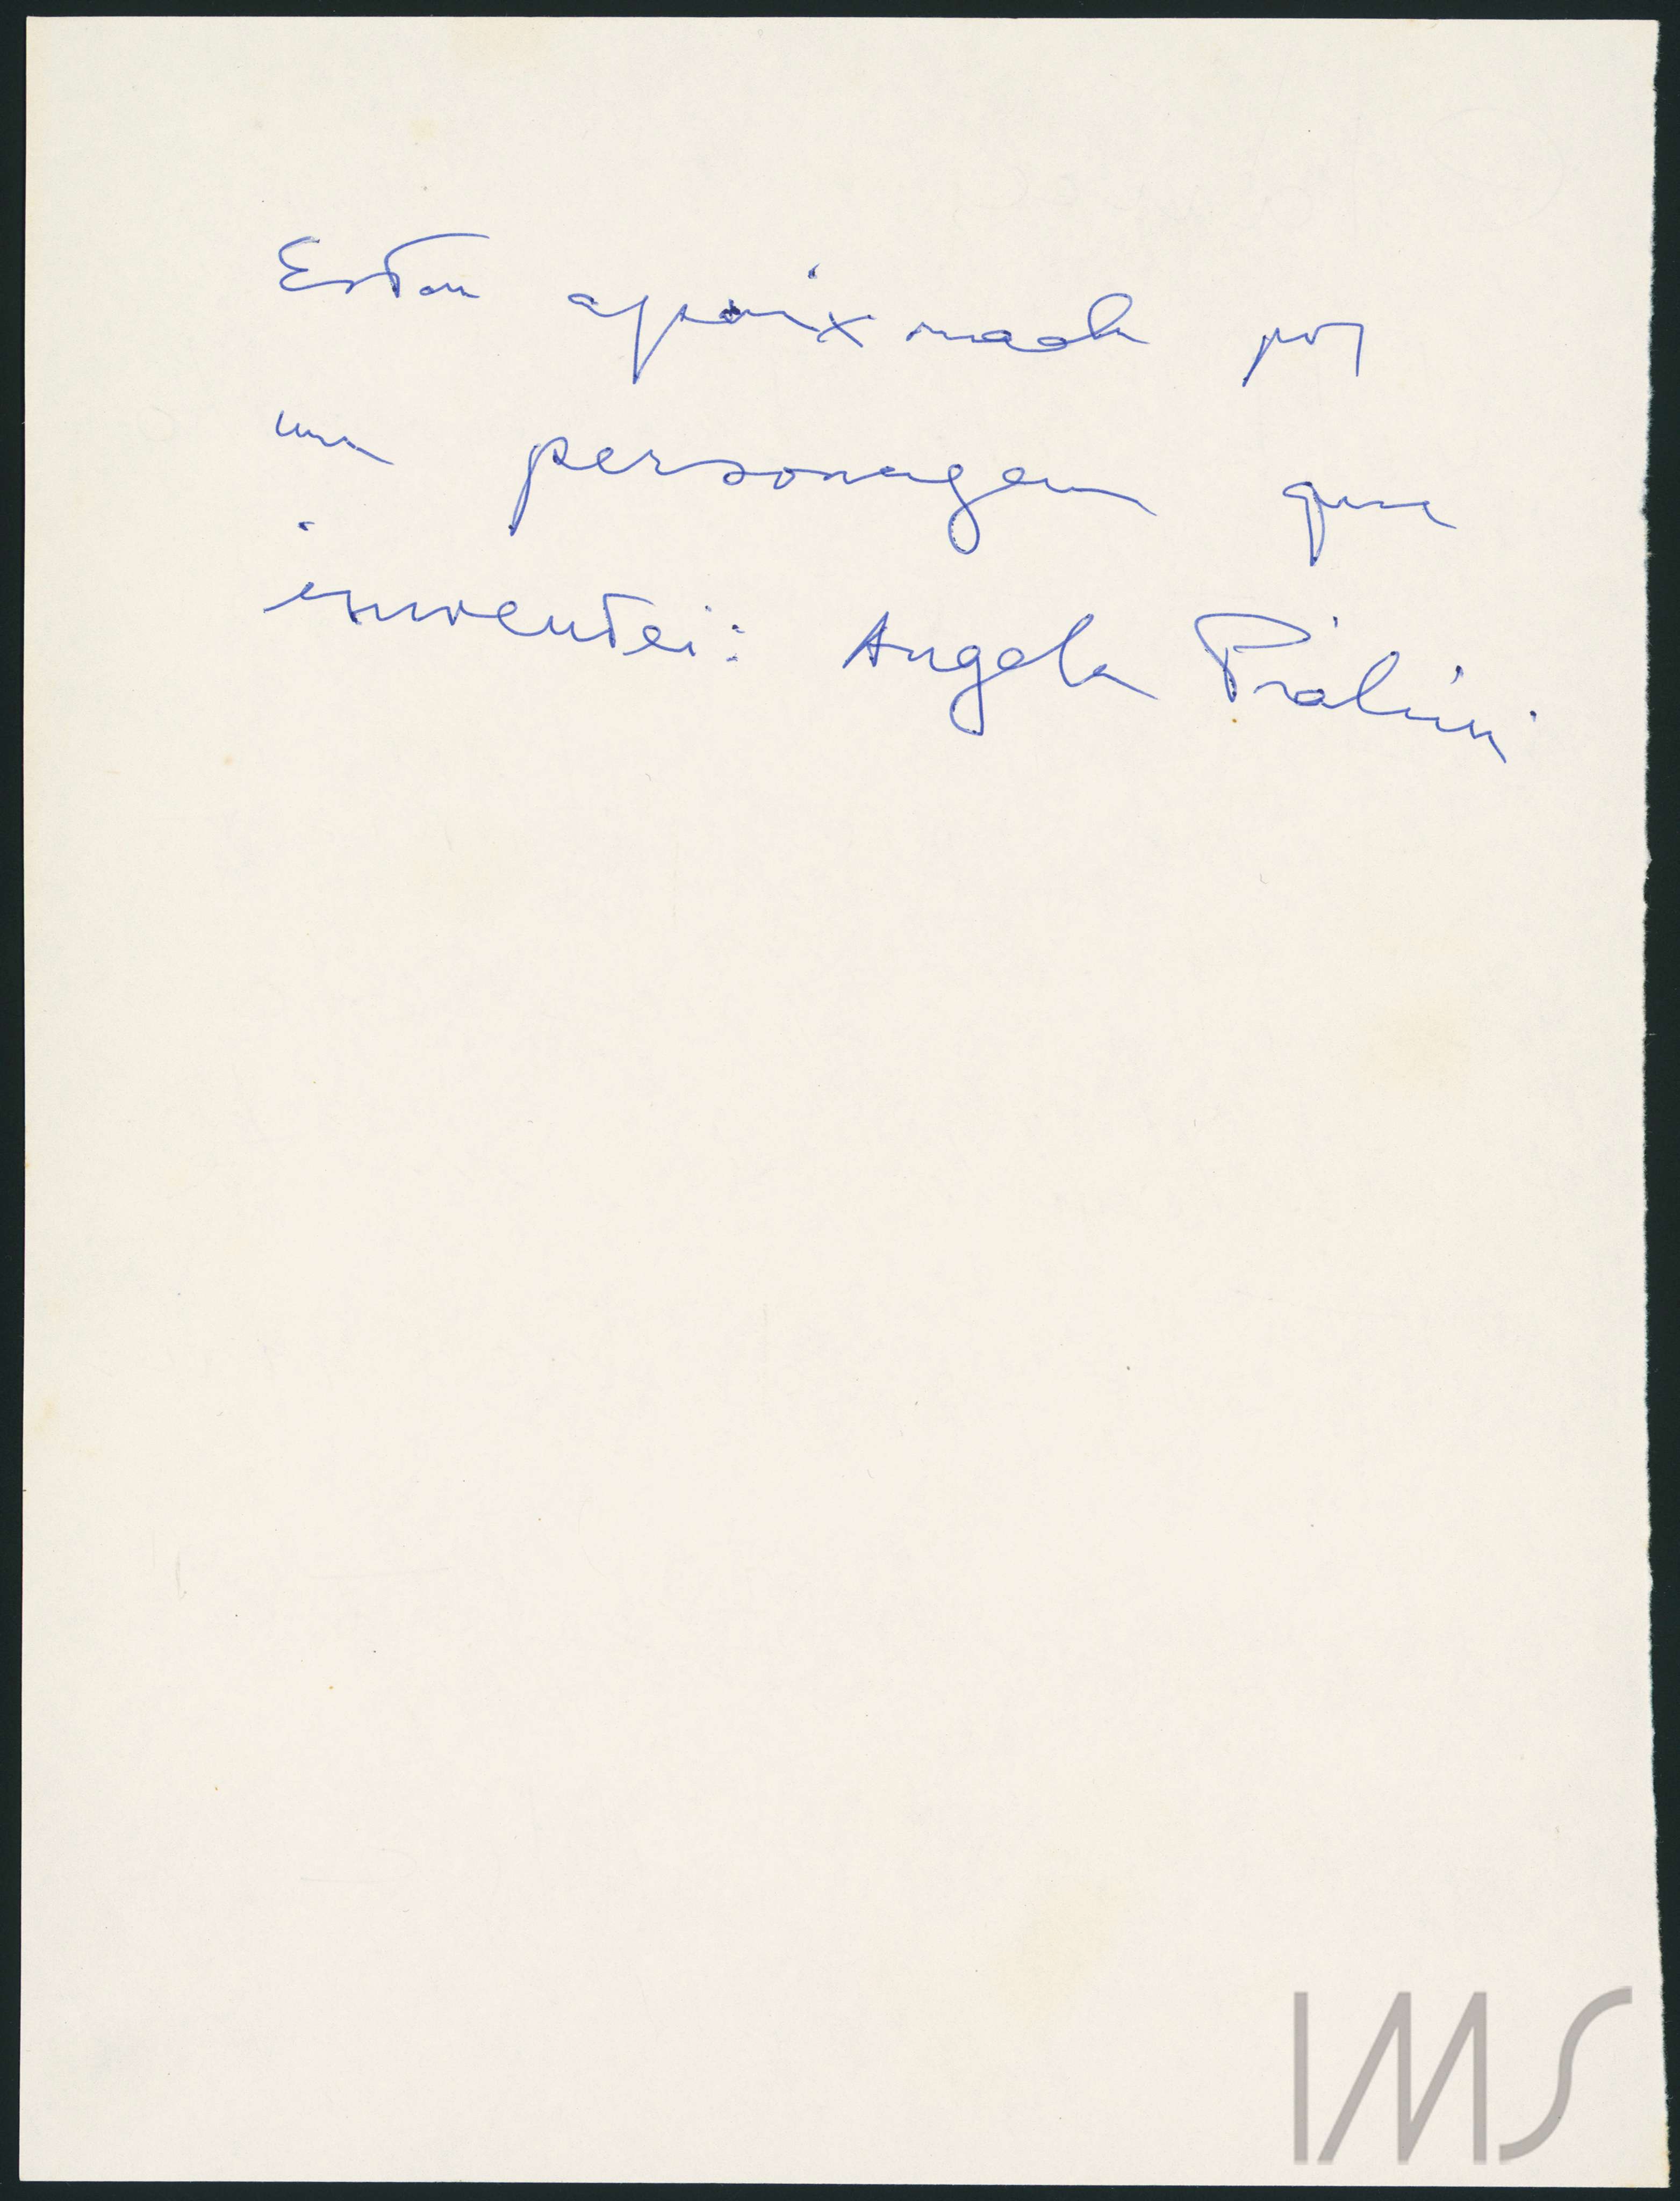 Estou apaixonada por
um personagem que
inventei: Angela Pralini
IMS